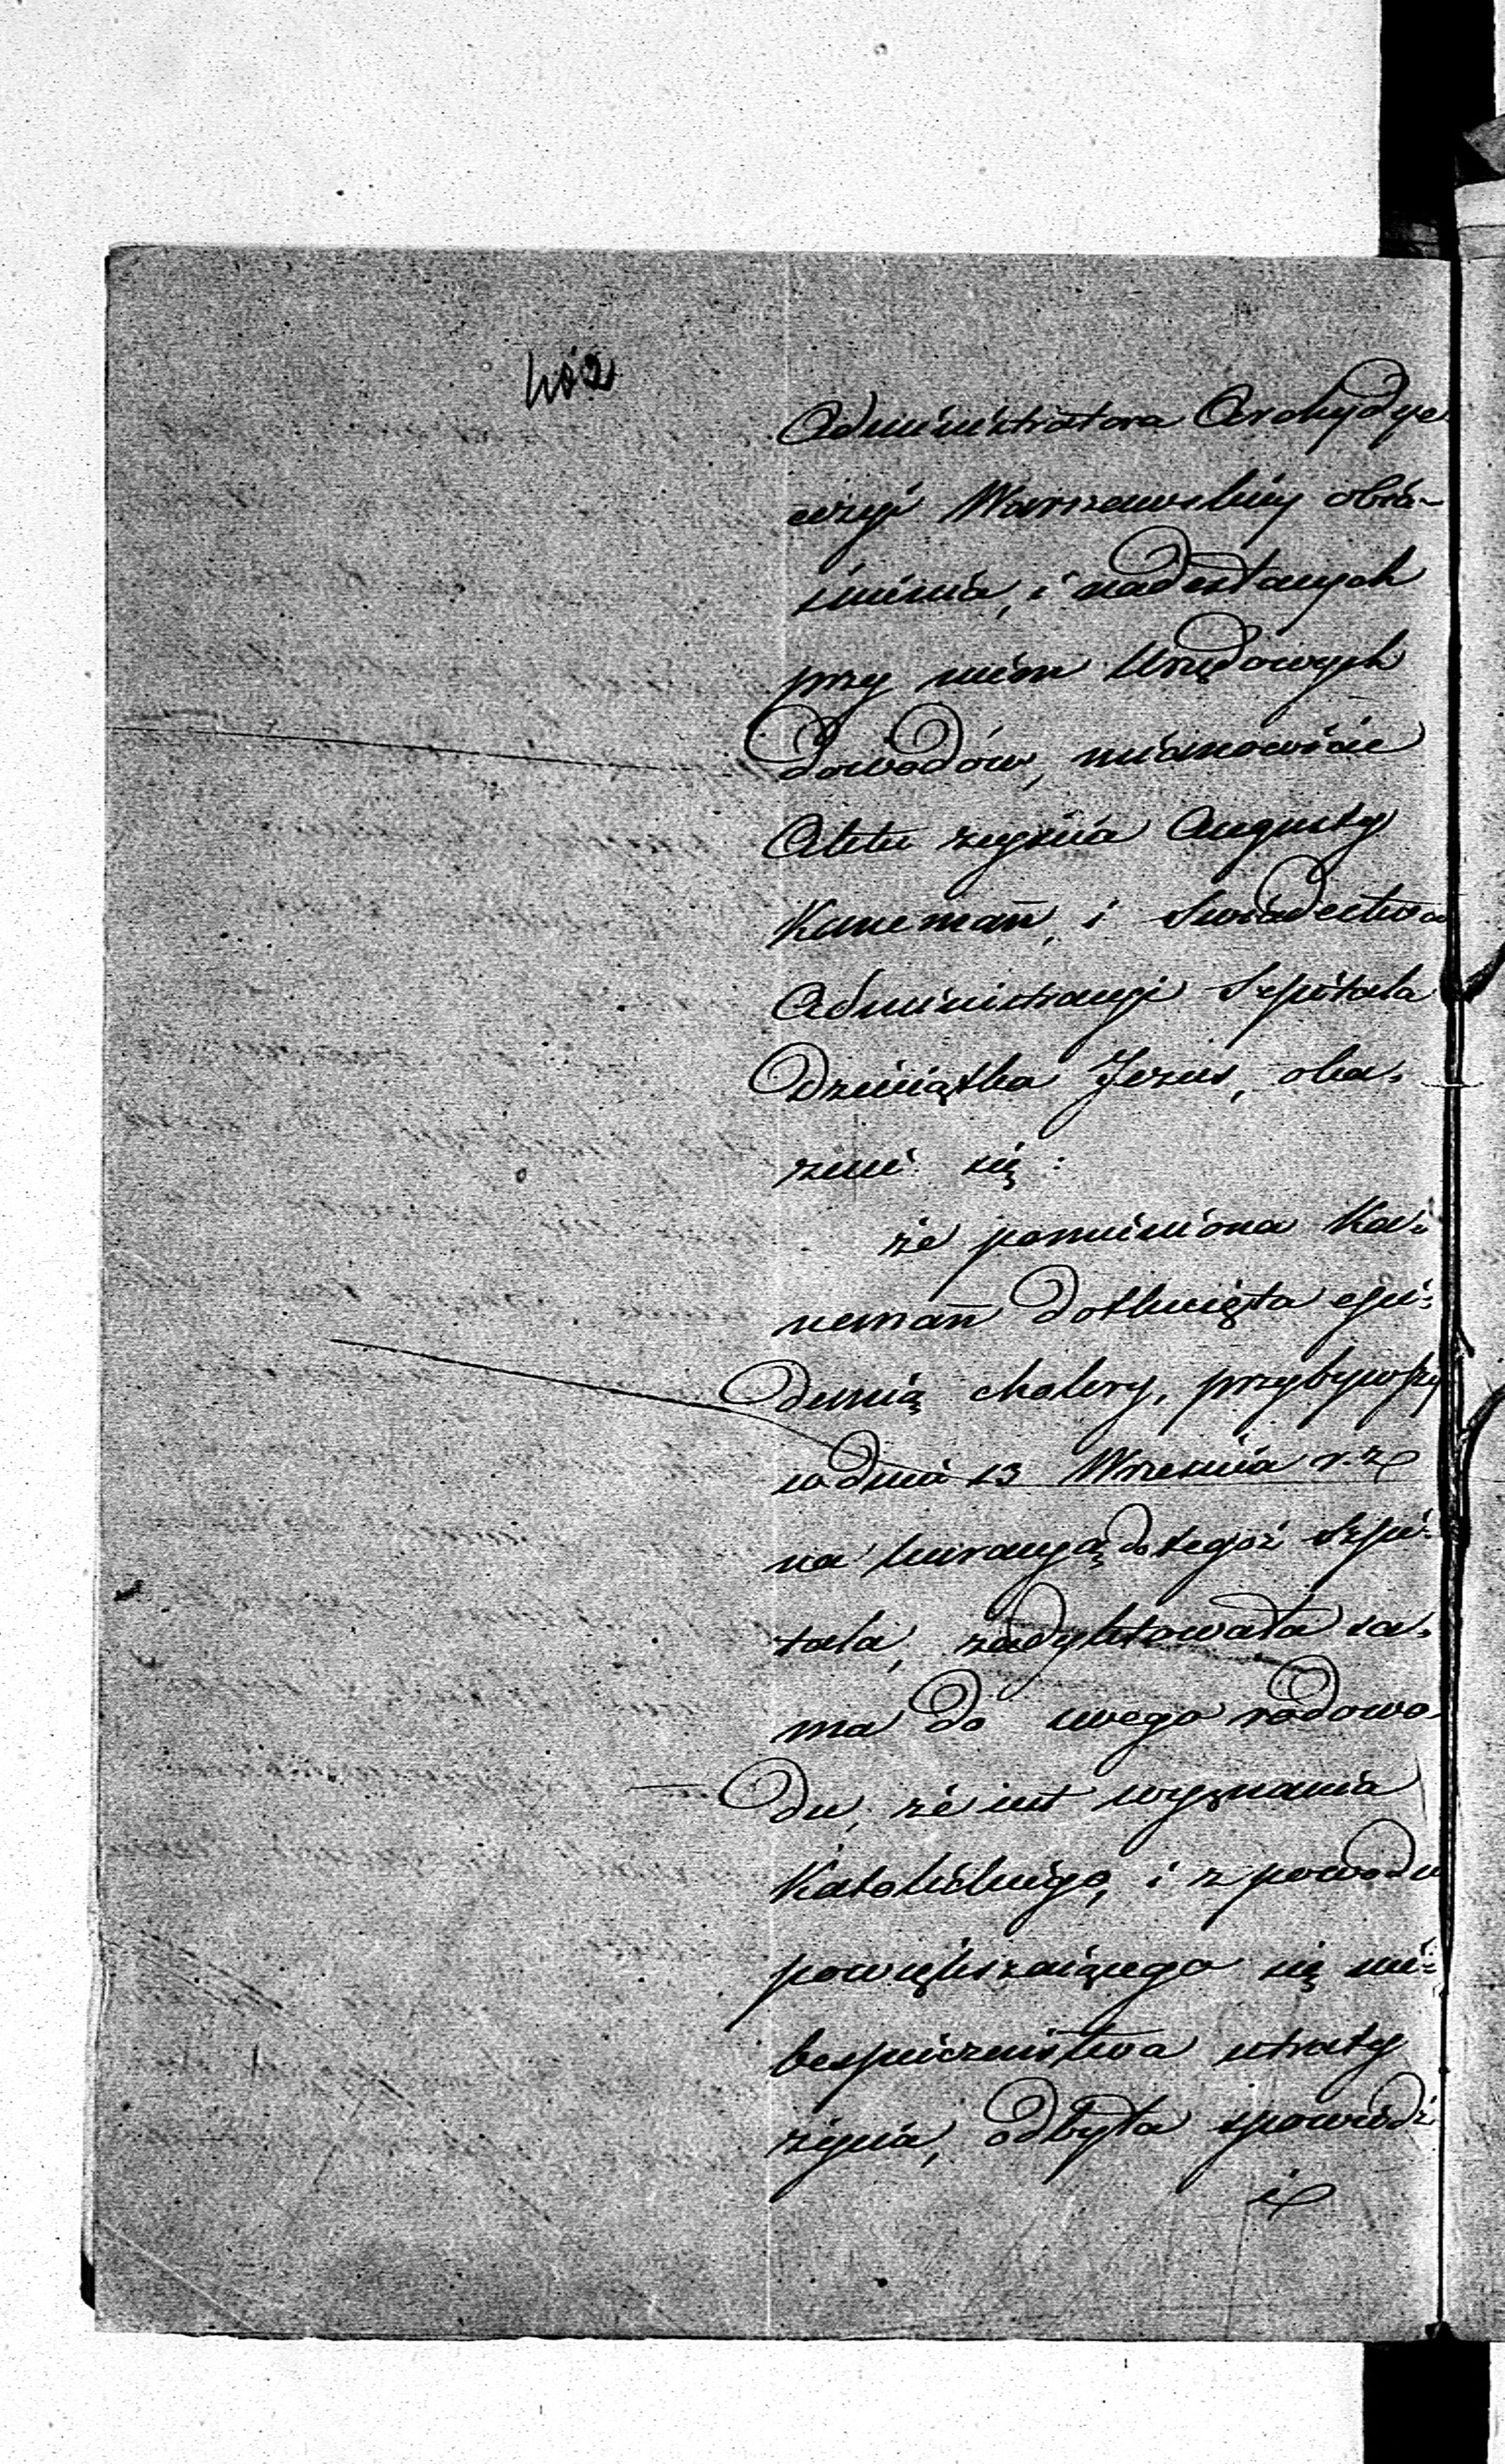 402
Administratora Archydye
cezyi Warszawskiéy obia-
śnienia, i nadesłanych
przy niém Urzędowych
Dowodów, mianowicie
Aktu zeyścia Augusty
Kaneman̄, i Swiadectwa
Administracyi Szpitala
Dzieciątka Jezus, oka-
zuie się:
że pomieniona Ka-
neman̄ dotknięta epi-
demią cholery, przybywszy
w dniu 13 Września r. z.
na kuracyą do tegoż szpi-
tala, zadyktowała sa-
ma do swego rodowo
du, że iest wyznania
Katolickiego, i z powodu
powiększaiącego się nie-
bespieczeństwa utraty
życia, odbyła spowiedź
i